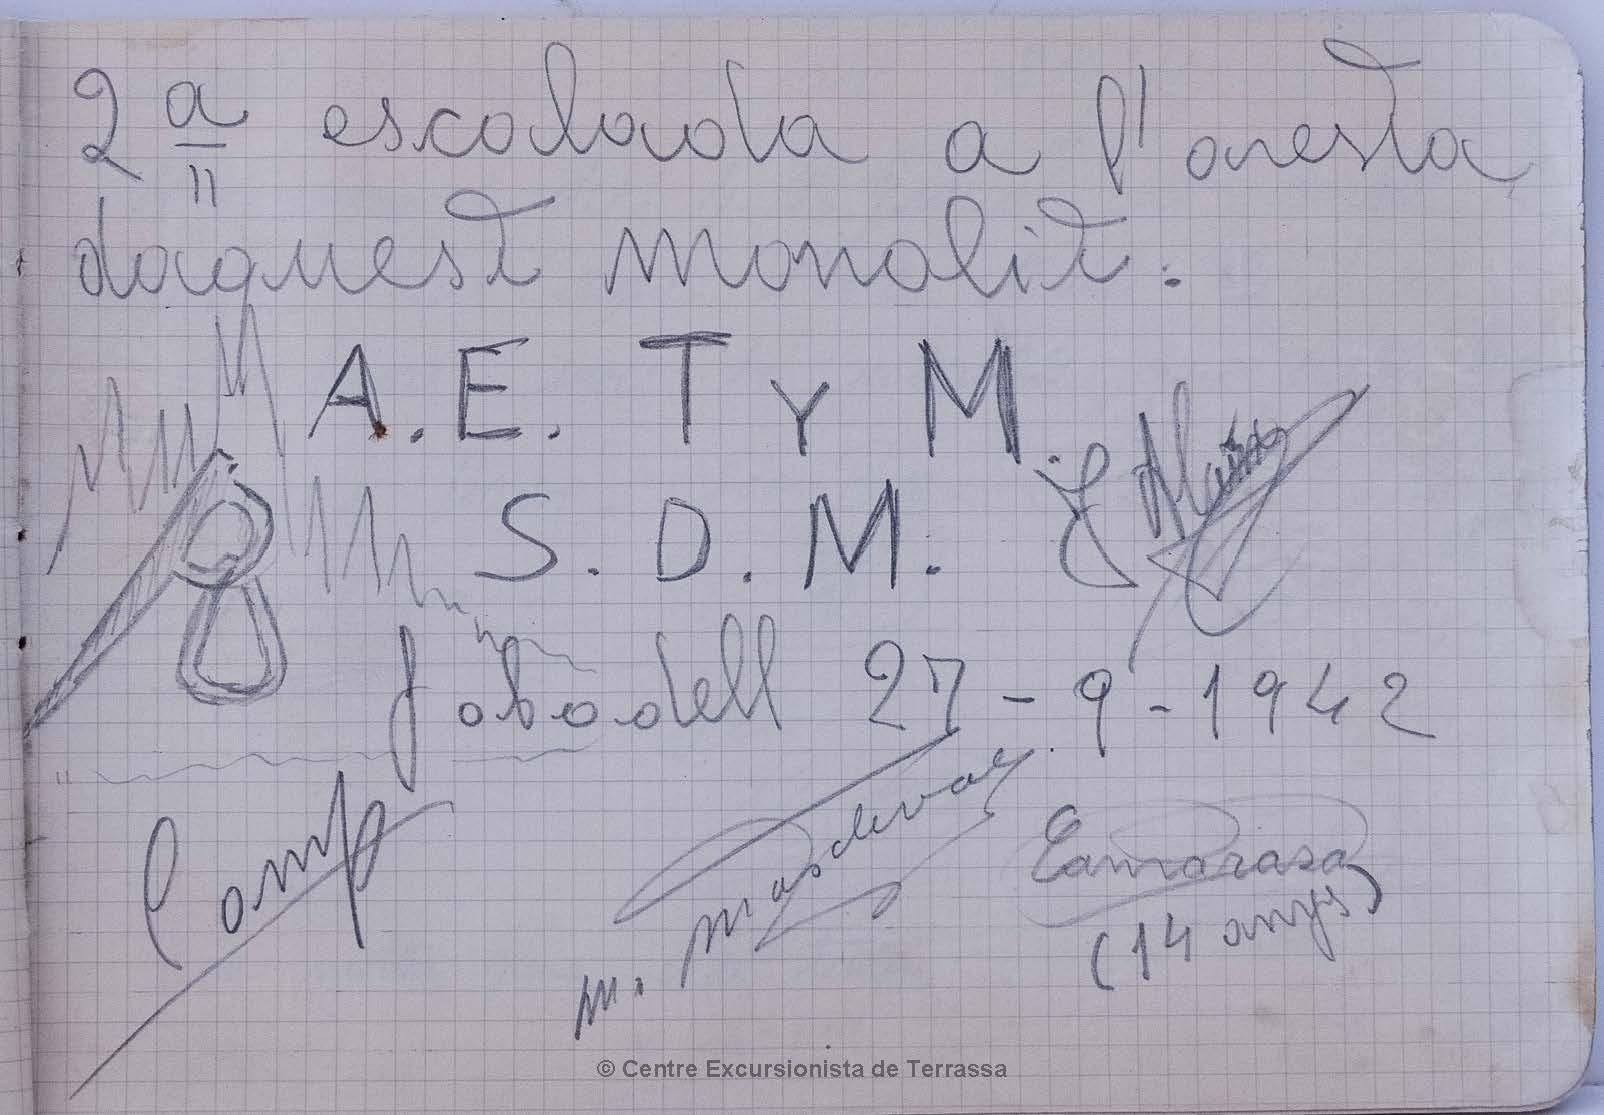 2ª escalada a l'aresta
daquest monolit.
A. E. T y M.
S. D. M.
Sabadell 27-9-1942
Camp
M. Masdeval
Camarasa
(14 anys)
© Centre Excursionista de Terrassa